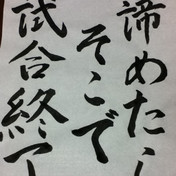 諦めたら
そこで
試合終了